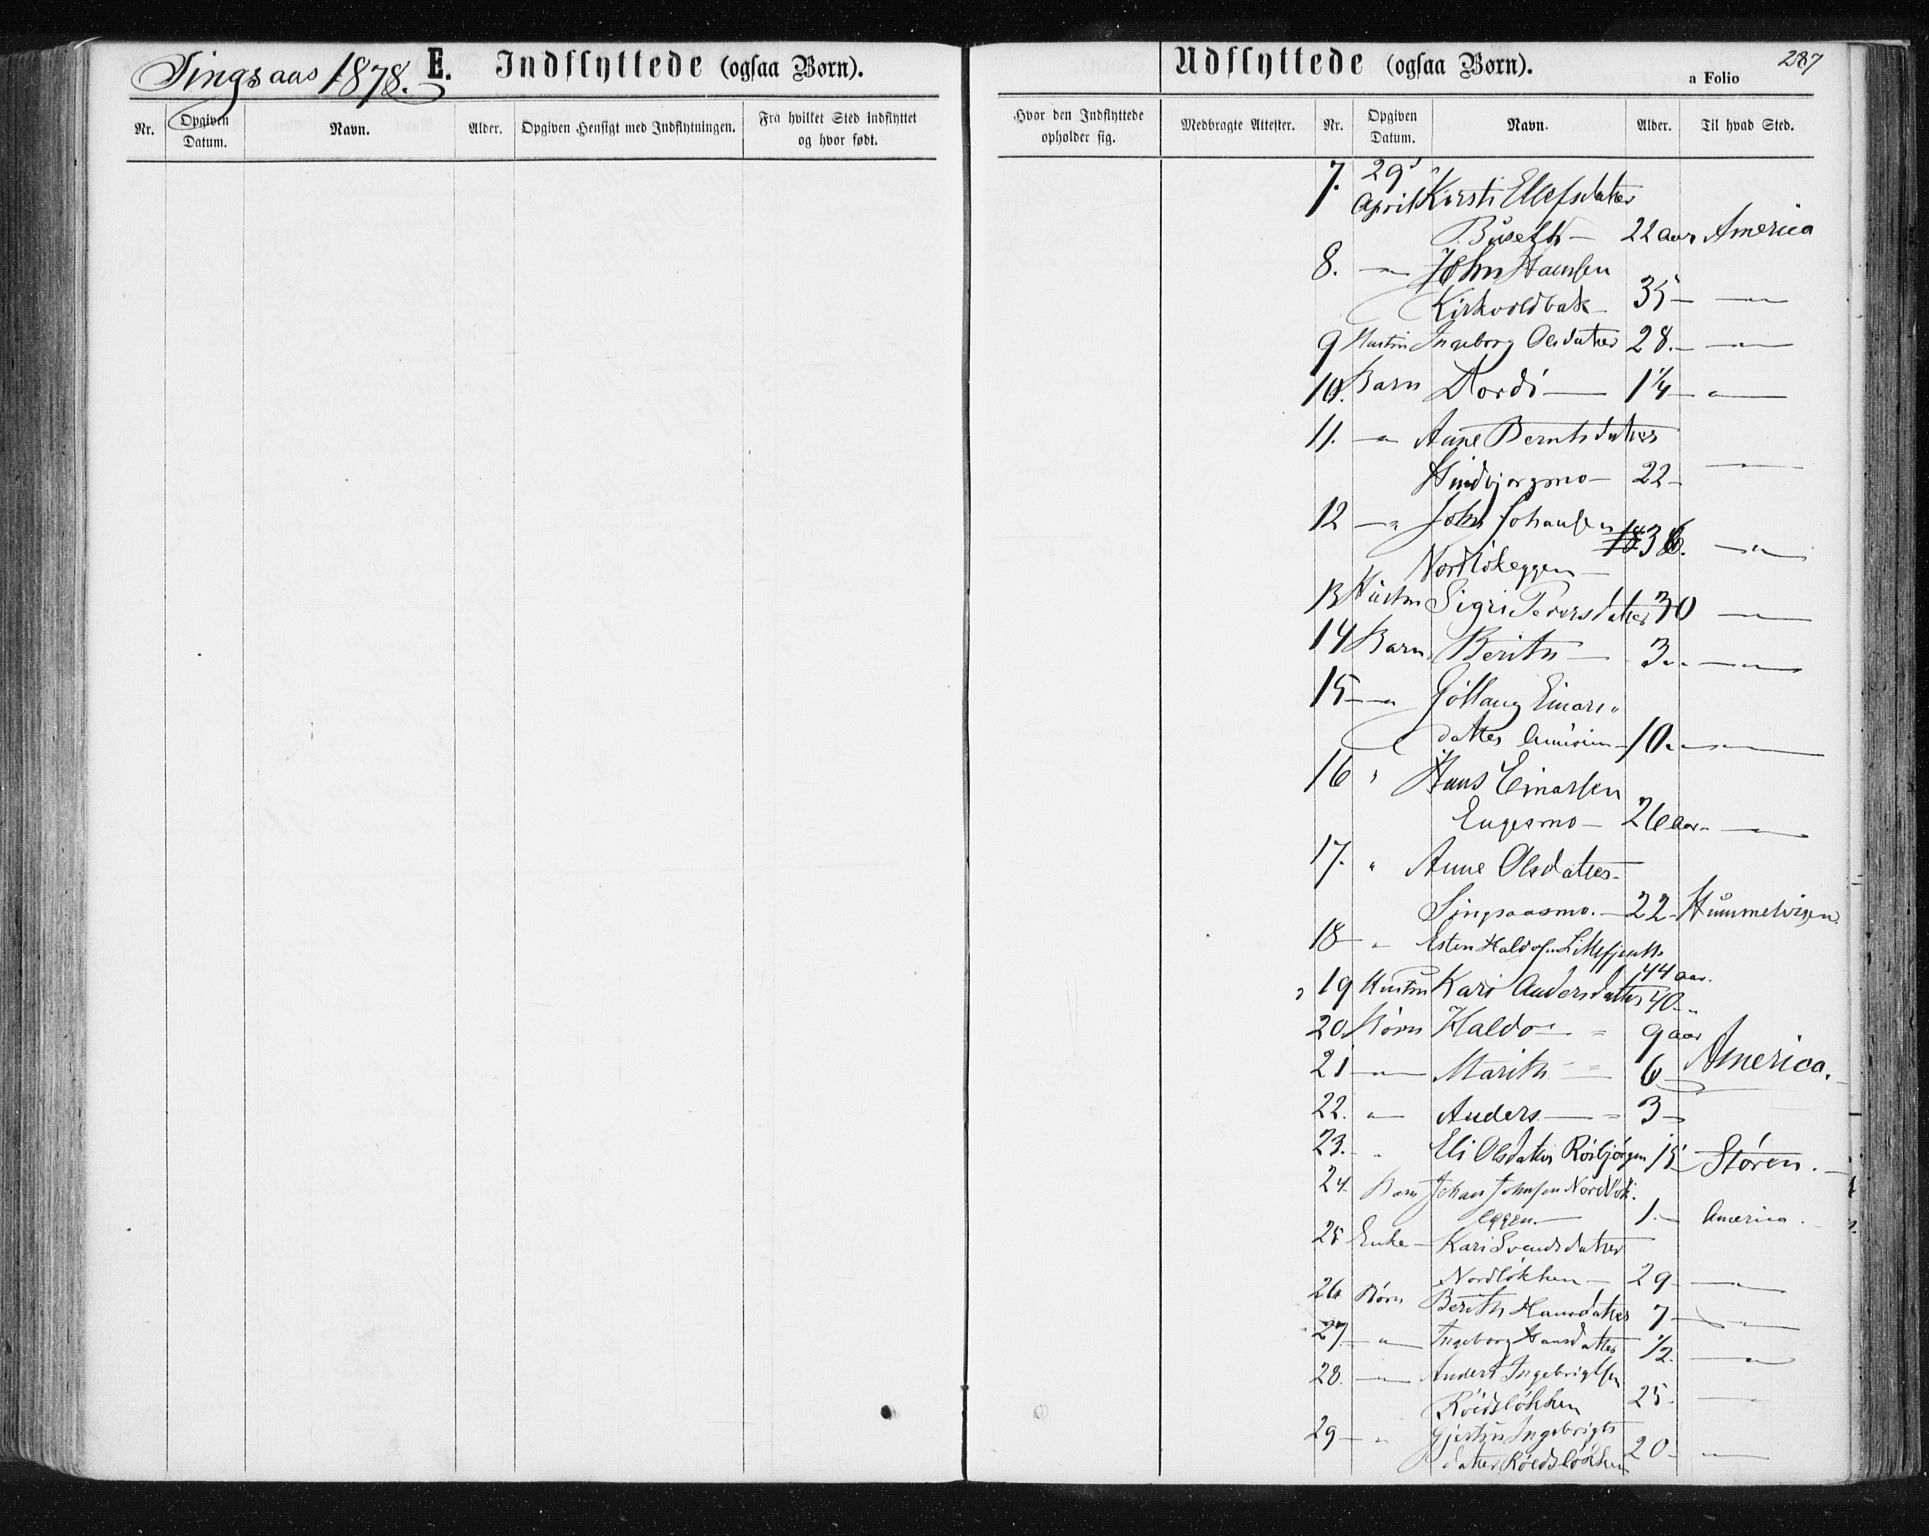 Singsaas 1878. E. Indflyttede (ogsaa Børn).
Udflyttede (ogsaa Børn). 287
a Folio
Nr. Opgiven Datum. Navn. Alder. Opgiven Hensigt med Indflytningen. Fra hvilket Sted indflyttet og hvor født.
Hvor den Indflyttede opholder sig. Medbragte Attester. Nr. Opgiven Datum. Navn. Alder. Til hvad Sted.
7. 29 April Kirsti Ellefsdatter
22 aar America
8. — " — John Hansen
Kirkvoldbak 35 — " —
9 Hustru Ingeborg Olsdatter 28. — " —
10. Barn Dordi — 1 1/4 — " —
11. — " Anne Berntsdatter
22 — " —
12 — " John Johansen
Nordløkeggen — 36. — " —
13 Hustru Sigri Pedersdatter 30 — " —
14 Barn Berith — 3 " — " —
15 — " Einars
datter 10 " — " —
16 " Hans Einarsen
Engesmo — 26 aar — " —
17. " Anne Olsdatter
Singsaasmo. — 22 — Hummelvigen
18 — " Esten
44 aar.
19 Hustru Kari Andersdatter 40 "
20. Børn Haldo — " 9 aar
21 — " — Marith — 6 — America.
22. " — Anders — " 3 —
23. " Eli Olsdatter 15 Støren. —
24. Barn Johan Johnsen Nordløk
eggen. — 1. — America.
25 Enke — Kari Svendsdatter
Nordløkken — 29 — " —
26 Børn Berith Hansdatter 7 — " —
27. — " Ingeborg Hansdatter 1/2. — " —
28. — " — Anders Ingebrigtsen
Røedsløkken 25. — " —
29 — " Ingebrigts
datter Røedsløkken 20 — " —